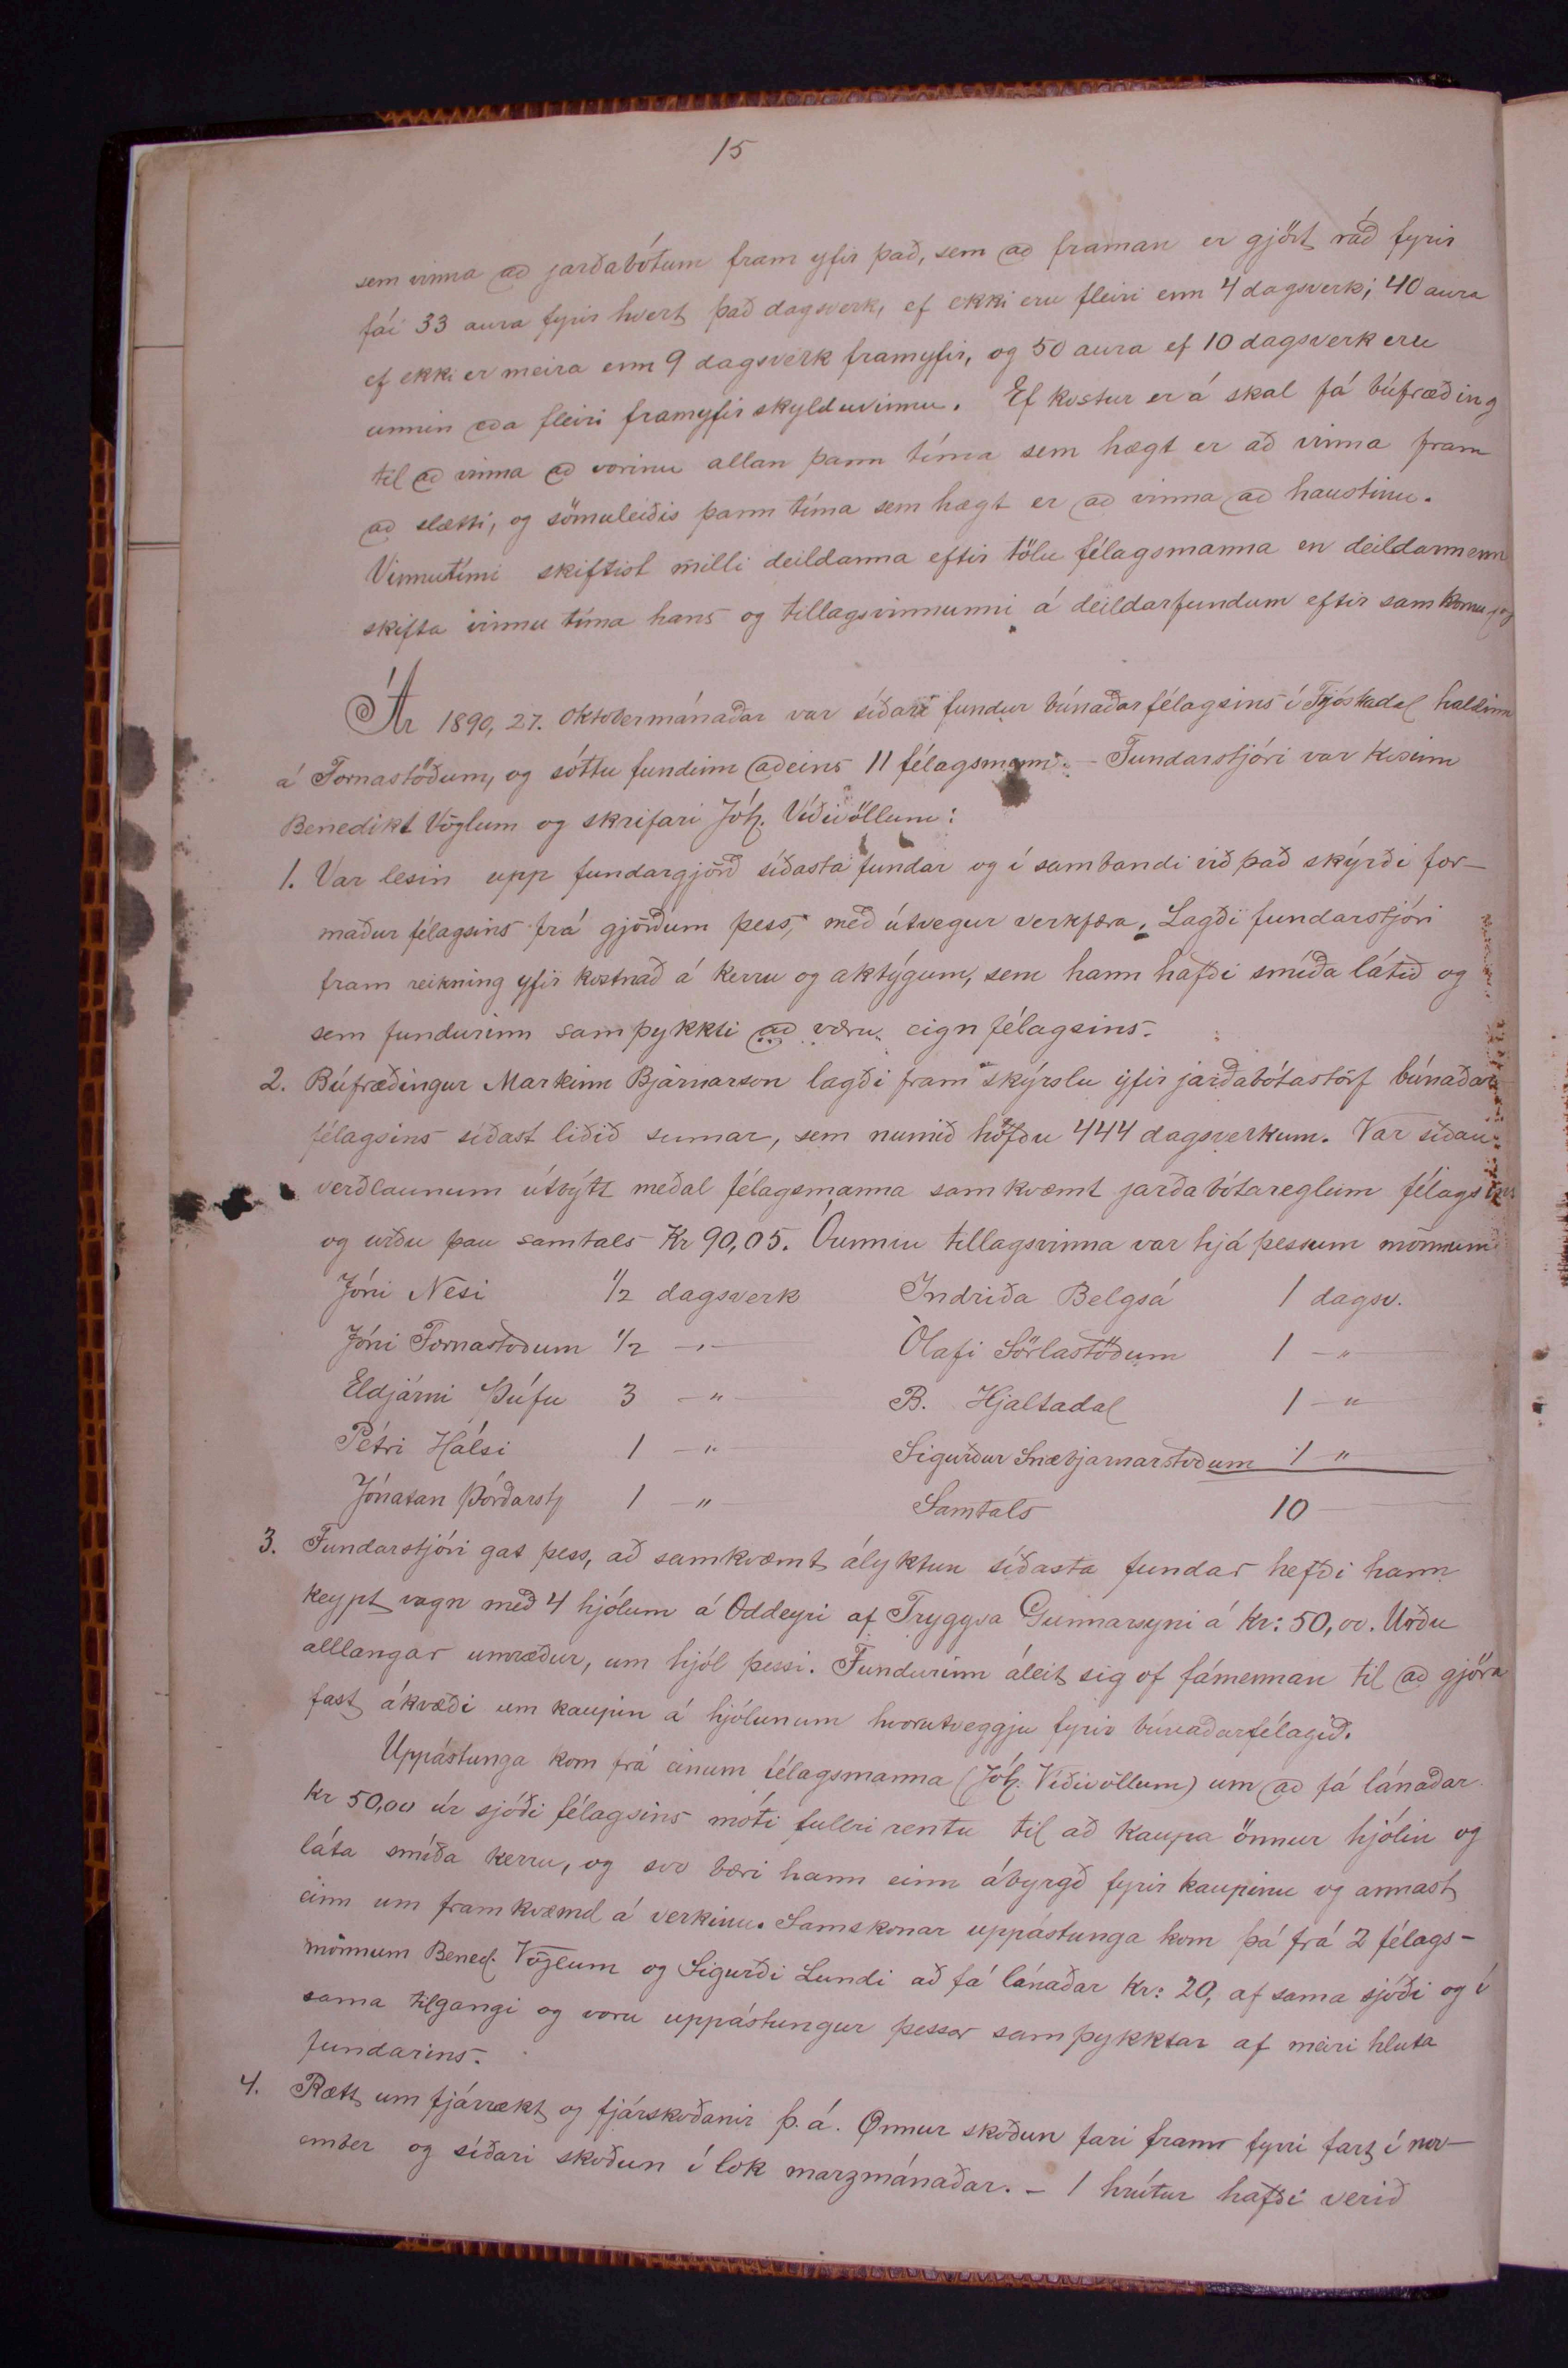 15
sem vinna að jarðabótum fram yfir það, sem að framan er gjört ráð fyrir
fái 33 aura fyrir hvert það dagsverk, ef ekki eru fleiri enn 4 dagsverk; 40 aura
ef ekki er meira enn 9 dagsverk framyfir, og 50 aura ef 10 dagsverk eru
unnin eða fleiri framyfir skylduvinnu. Ef kostur er á skal fá búfræðing
til að vinna að vorinu allan þann tíma sem hægt er að vinna fram
að slætti, og sömuleiðis þann tíma sem hægt er að vinna að haustinu.
Vinnutími skiftist milli deildanna eftir tölu félagsmanna en deildarmenn
skifta vinnu tíma hans og tillagsvinnunni á deildarfundum eftir samkomulag
Ár 1890, 27. Oktobermánaðar var síðari fundur búnaðarfélagsins í Fnjóskadal haldinn
á Fornastöðum, og sóttu fundinn aðeins 11 félagsmenn. – Fundarstjóri var kosinn
Benedikt Vöglum og skrifari Jóh. Víðivöllum:
1. Var lesin upp fundargjörð síðasta fundar og í sambandi við það skýrði for-
maður félagsins frá gjörðum þess, með útvegur verkfæra. Lagði fundarstjóri
fram reikning yfir kostnað á kerru og aktýgum, sem hann hafði smíða látið og
sem fundurinn samþykkti að væru eign félagsins.
2. Búfræðingur Markinn Bjarnarson lagði fram skýrslu yfir jarðabótastörf búnaðar
félagsins síðast liðið sumar, sem numið höfðu 444 dagsverkum. Var síðan
verðlaunum útbýtt meðal félagsmanna samkvæmt jarðabótareglum félagsins
og urðu þau samtals Kr 90,05. Óunnin tillagsvinna var hjá þessum mönnum
Jóni Nesi 1/2 dagsverk Indriða Belgsá 1 dagsv.
Jóni Fornastöðum 1/2 –„– Ólafi Sörlastöðum 1 –„
Eldjárni Þúfu 3 –„– B. Hjaltadal 1 –„
Pétri Hálsi 1 –„ Sigurður Snæbjarnarstöðum 1 „
Jónatan Þórðarst. 1 –„– Samtals 10 –
3. Fundarstjóri gat þess, að samkvæmt ályktun síðasta fundar hefði hann
keypt vagn með 4 hjólum á Oddeyri af Tryggva Gunnarsyni á Kr: 50,00. Urðu
alllangar umræður, um hjól þessi. Fundurinn áleit sig of fámennan til að gjöra
fast ákvæði um kaupin á hjólunum hvorutveggju fyrir búnaðarfélagið.
Uppástunga kom frá einum félagsmanna (Jóh. Víðivöllum) um að fá lánaðar
Kr 50,00 úr sjóði félagsins móti fullri rentu til að kaupa önnur hjólin og
láta smíða kerru, og svo bæri hann einn ábyrgð fyrir kaupinu og annast
einn um framkvæmd á verkinu. Samskonar uppástunga kom þá frá 2 félags-
mönnum Bened. Vöglum og Sigurði Lundi að fá lánaðar Kr: 20, af sama sjóði og í
sama tilgangi og voru uppástungur þessar samþykktar af meiri hluta
fundarins.
4. Rætt um fjárrækt og fjárskoðanir þ. á. Önnur skoðun fari fram fyrri part í nov-
ember og síðari skoðun í lok marzmánaðar. – 1 hrútur hafði verið